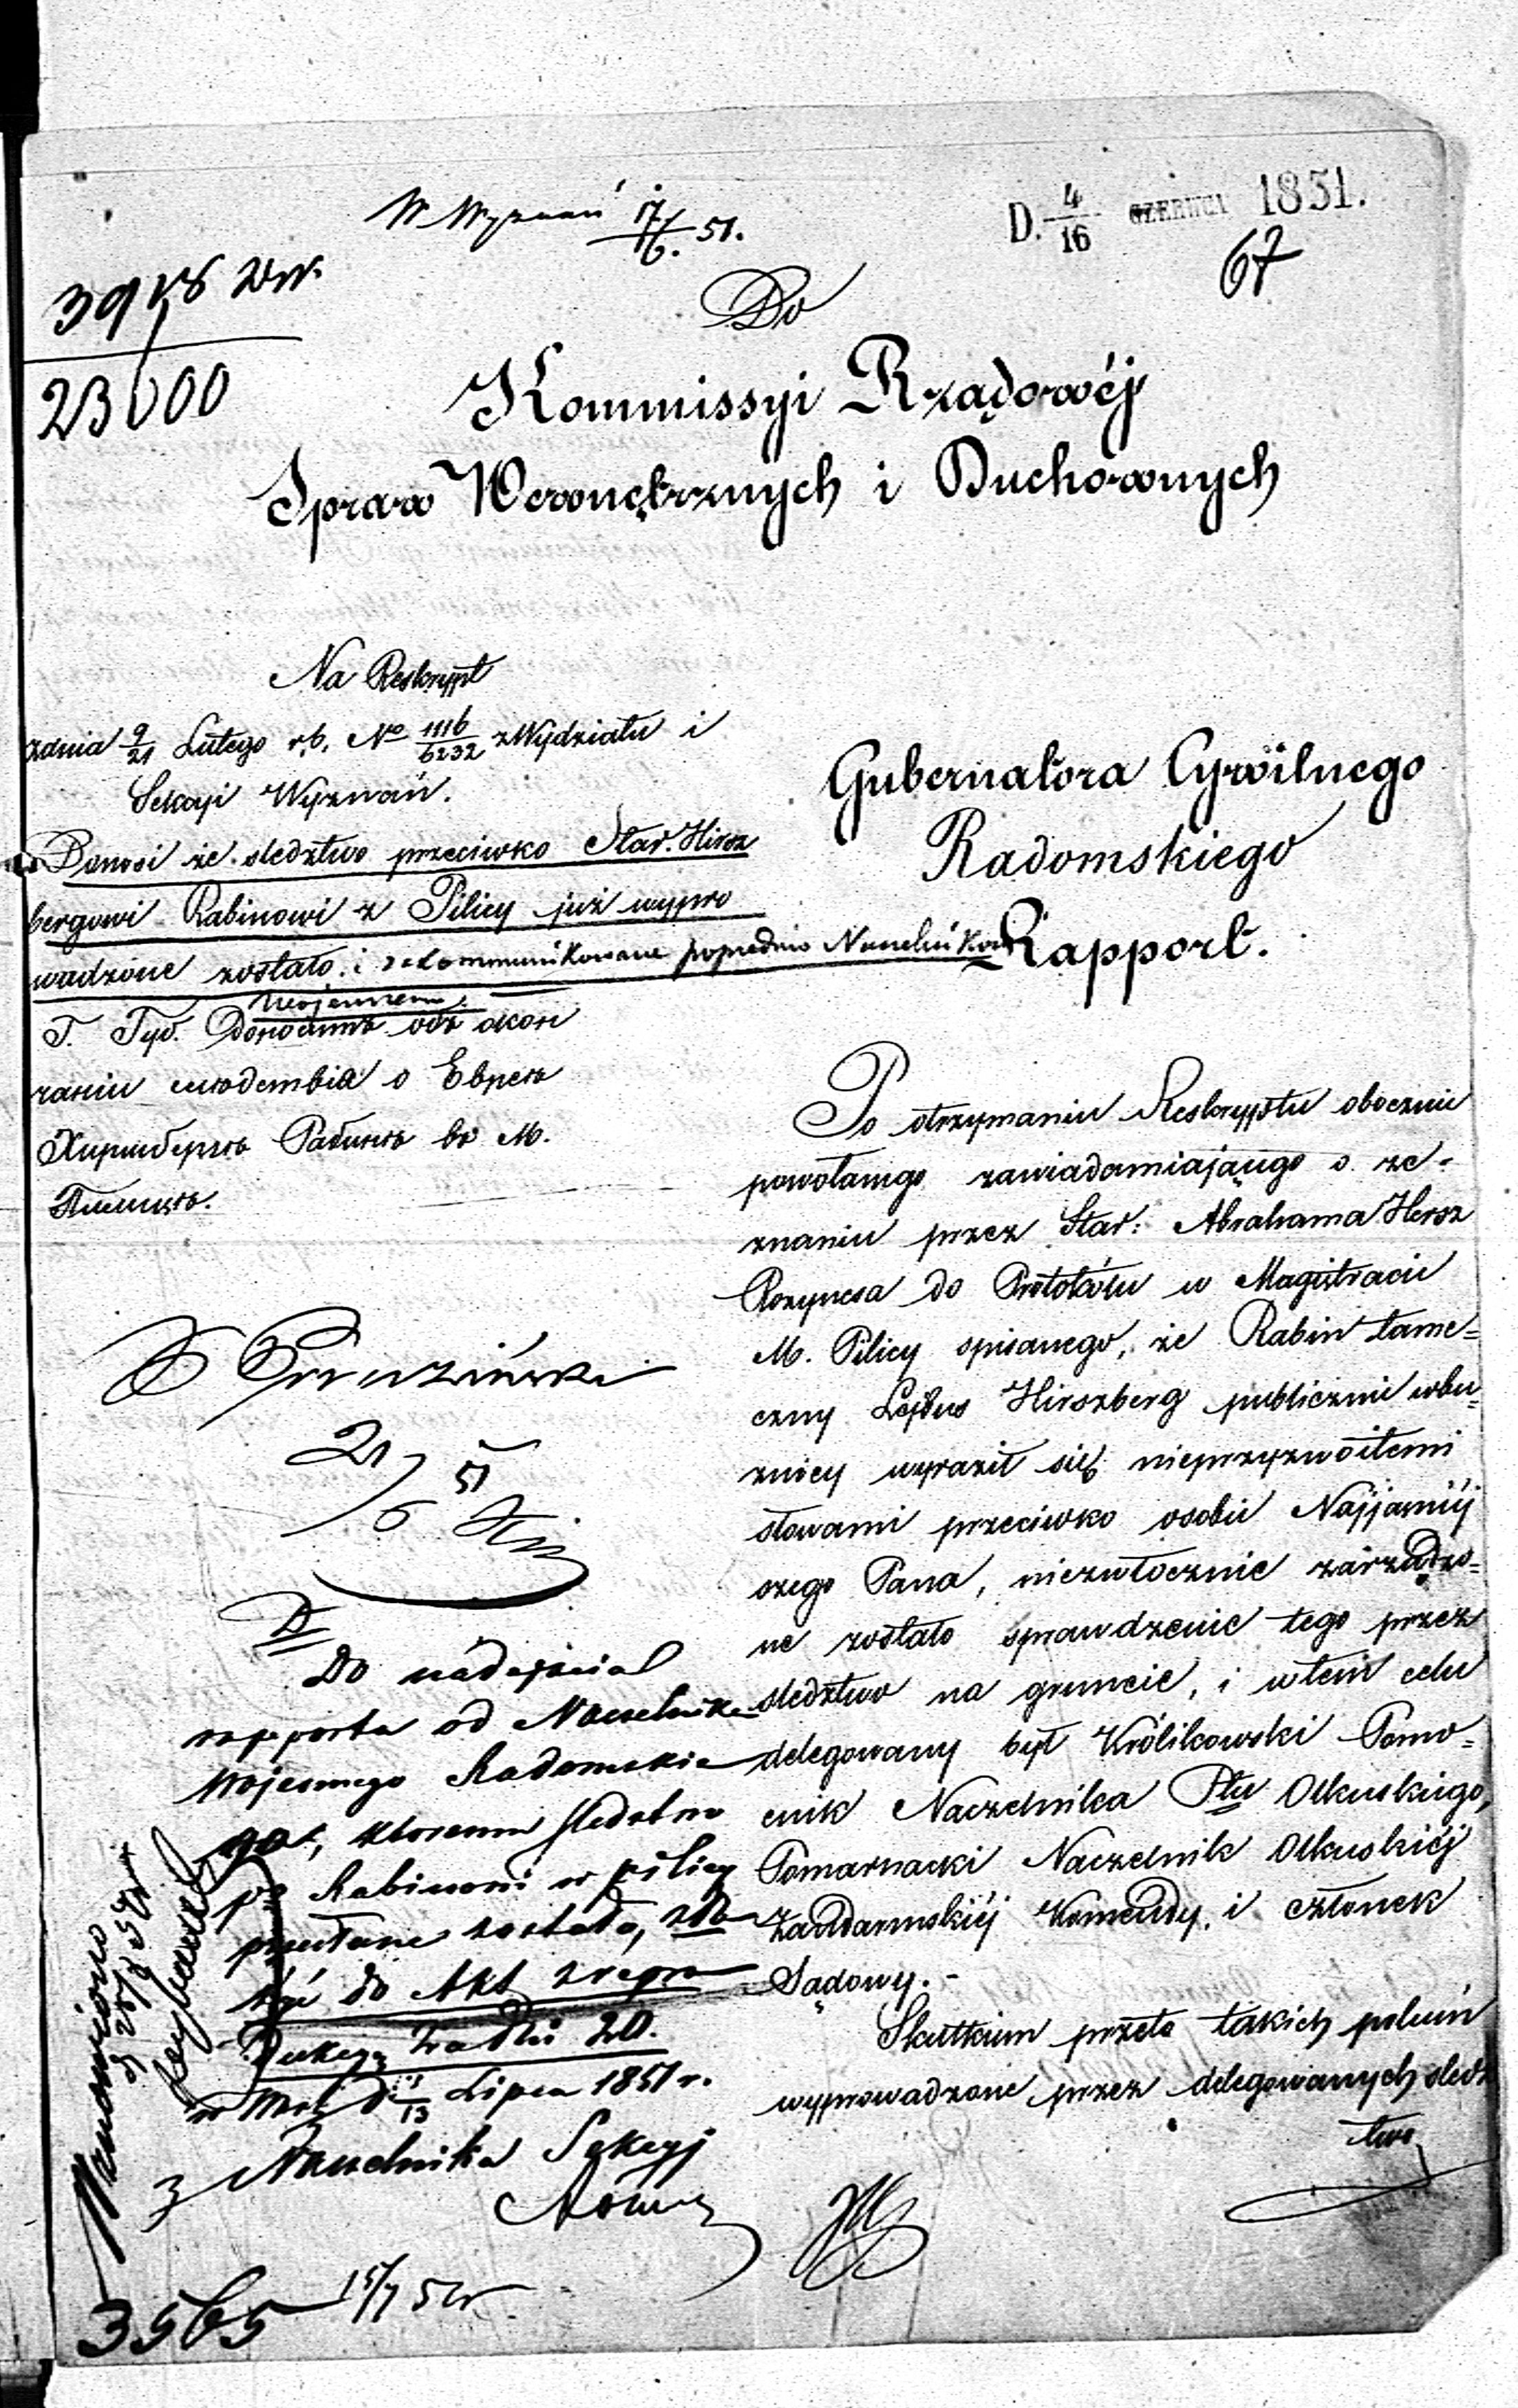 W Wyznań 17/6. 51.
D. 4/16 CZERWCA 1851.
67
3918 WW.
23600
Do
Kommissyi Rządowéj
Spraw Wewnętrznych i Duchownych
Na Reskrypt
zdnia 9/21 Lutego r.b. No 1116/6232 z Wydziału i
Sekcyi Wyznań.
Donosi że śledztwo przeciwko Star. Hirsz
bergowi Rabinowi z Pilicy już wypro
wadzone zostało i zakommunikowane poprzednio Naczelnikowi
Wojennemu.
Г. Губ. Доноситъ объ окон
чаніи слѣдствія о Евреѣ
Хиршбергѣ Рабинѣ въ М.
Пилицѣ.
Gubernatora Cywilnego
Radomskiego
Rapport.
Po otrzymaniu Reskryptu obocznie
powołanego zawiadamiającego o ze-
znaniu przez Star: Abrahama Hersz
do Protokółu w Magistracie
M. Pilicy spisanego, że Rabin tame=
czny Lejbus Hirszberg publicznie wbu=
znicy wyraził się nieprzyzwoitemi
słowami przeciwko osobie Najjaśniéj
szego Pana, niezwłocznie zarządzo=
ne zostało sprawdzenie tego przez
śledztwo na gruncie, i wtem celu
delegowany był Królikowski Pomo=
cnik Naczelnika Ptu Olkuskiego,
Pomarnacki Naczelnik Olkuskiéj
Żandarmskiéj Komendy, i członek
Sądowy.-
Skutkiem przeto takich poleceń
wyprowadzone przez delegowanych śledz
two
21/6 51
Do nadejścia
rapportu od Naczelnika
Wojennego Radomskie
go, któremu śledztwo
pko Rabinowi w Pilicy
przesłane zostało, zło
żyć do Akt z repro
dukcyą za dni 20.
w War. d. 1/13 Lipca 1851 r.
z Naczelnika Sekcyi
3565 15/7 51r